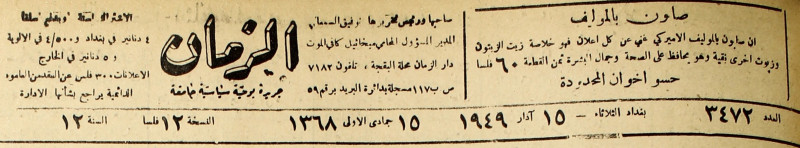 صابون بالموليف
ان سابون بالموليف الاميركي غني عن كل اعلان فهو خلاصة زيت الزيتون
وزيوت اخرى نقية وهو يحافظ على الصحة وجمال البشرة ثمن القطعة ٦٠ فلسا
حسو اخوان المحدودة
صاحبها ورئيس تحريرها توفيق السمعاني
المدير المسؤول المحامي ميخائيل كافي الموت
دار الزمان محلة البقجة، تلفون ٧١٨٣
ص ب ١١٧ مسجلة بدائرة البريد برقم ٥٩
الزمان
جريدة يومية سياسية جامعة
الاشتراك لسنة وبدفع سلفا
٤ دنانير في بغداد و ٤/٥٠٠ في الالوية
و ٥ دنانير في الخارج
الاعلانات ٣٠٠ فلس عن العقد من العامود
الدائمية يراجع بشأنها الادارة
العدد ٣٤٧٢
بغداد الثلاثاء - ١٥ آذار ١٩٤٩
١٥ جمادى الاولى ١٣٦٨
النسخة ١٢ فلسا
السنة ١٢